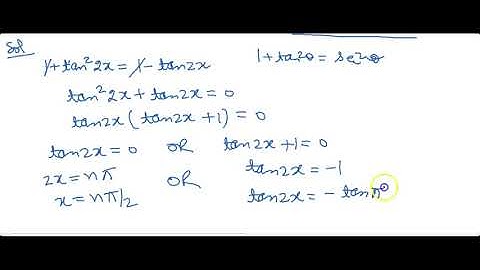 Sol
1+tan²2x = 1 - tan2x    1+tan²θ = sec²θ
tan²2x + tan2x = 0
tan2x (tan2x + 1) = 0
tan2x = 0 OR tan2x + 1 = 0
2x = nπ OR tan2x = -1
x = nπ/2    tan2x = - tanπ